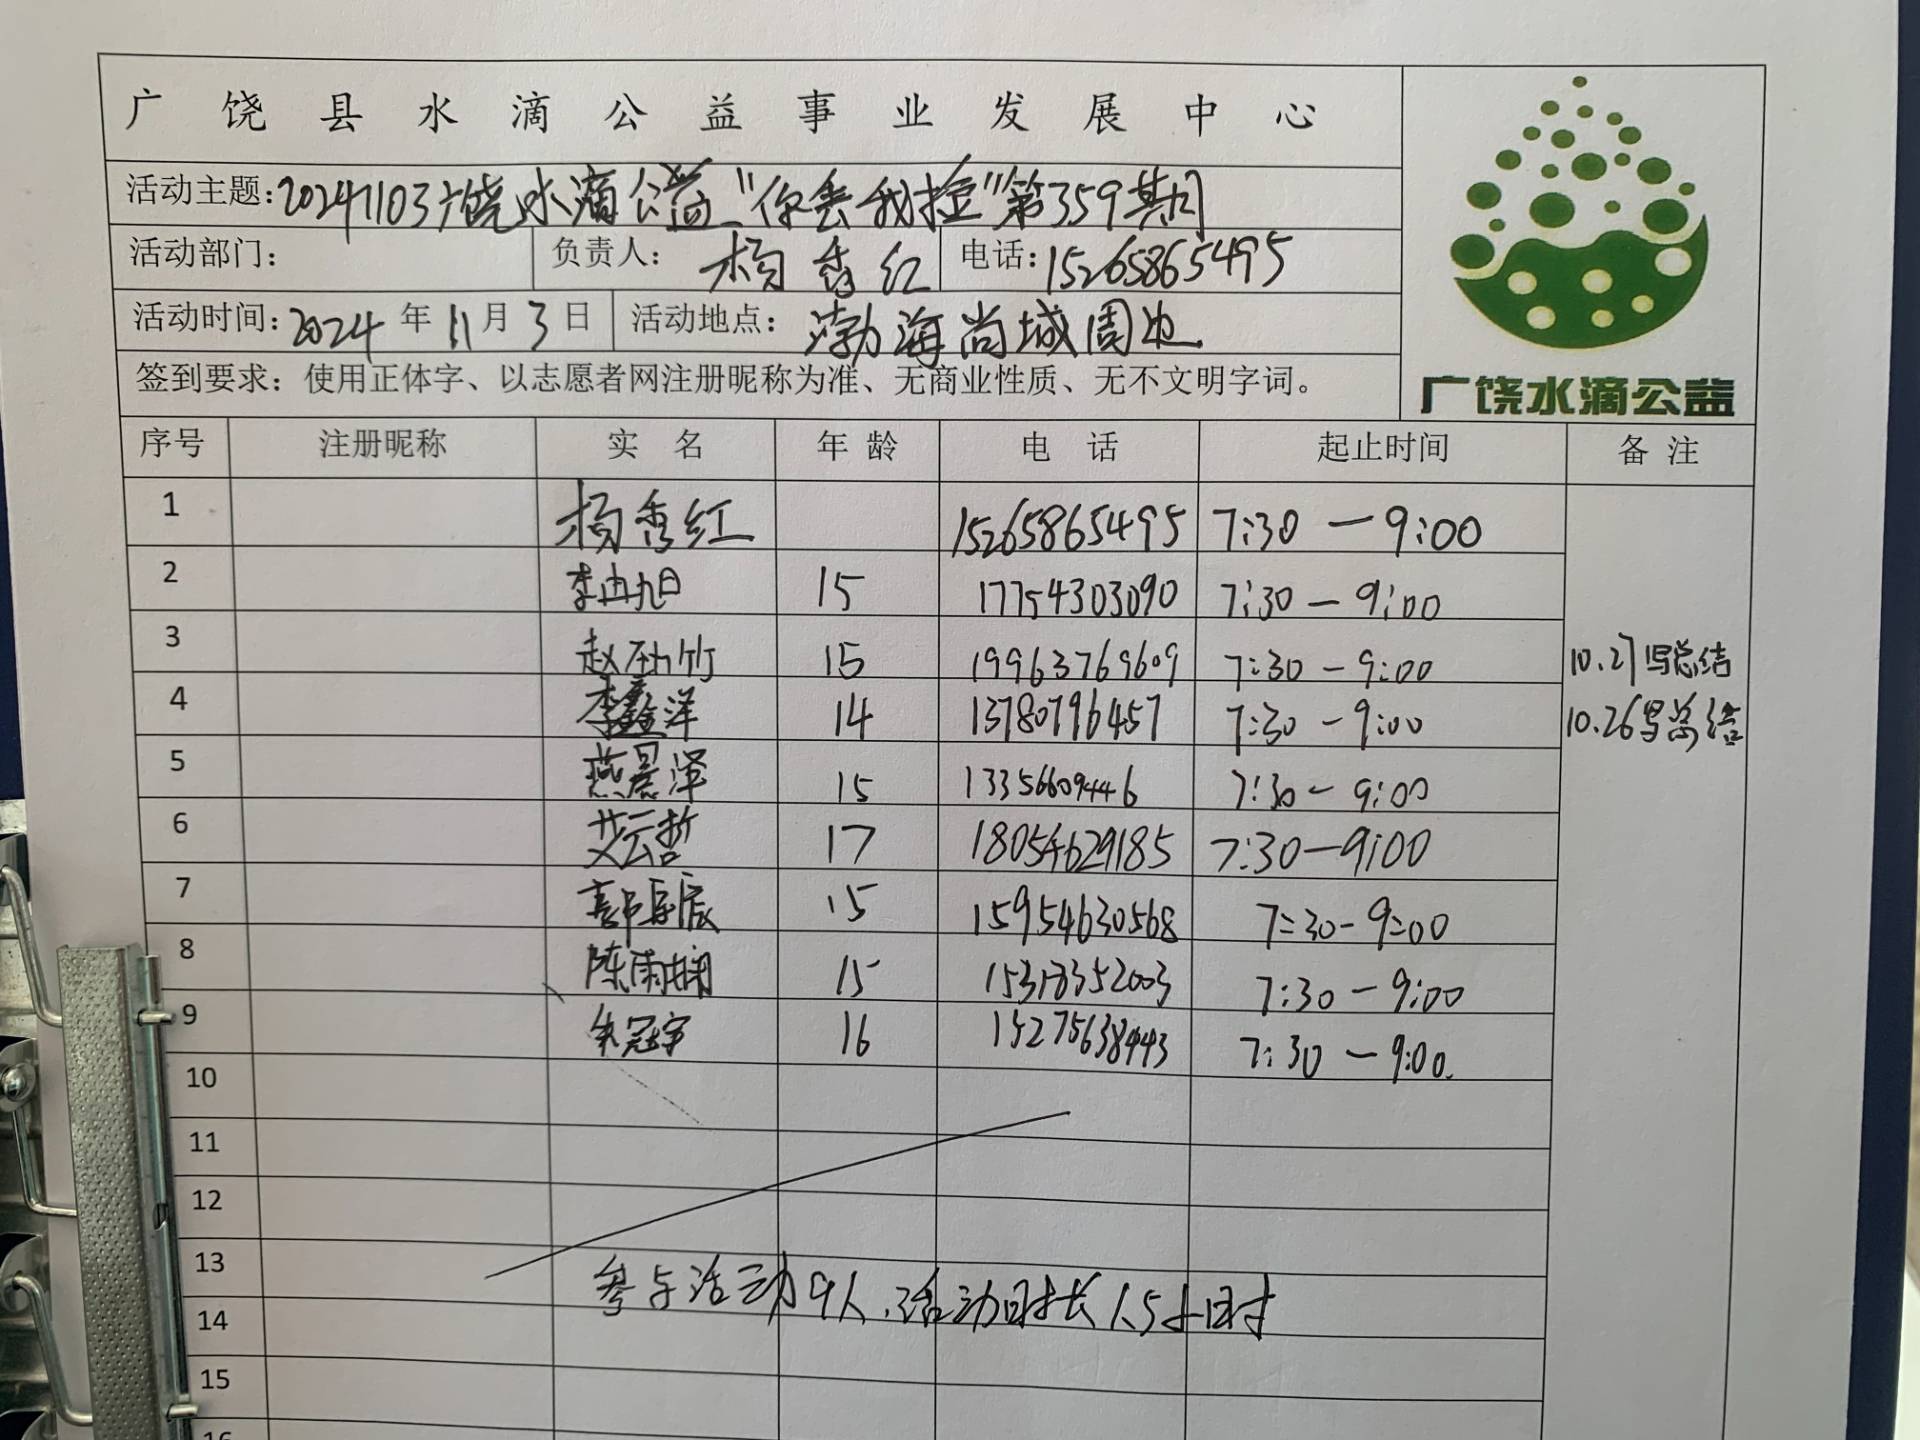 广饶县水滴公益事业发展中心
活动主题:20241103广饶水滴公益"你丢我捡"第359期
活动部门: 负责人: 杨秀红 电话:15265865495
活动时间:2024年11月3日 活动地点: 渤海尚城周边
签到要求: 使用正体字、以志愿者网注册昵称为准、无商业性质、无不文明字词。
广饶水滴公益
序号 注册昵称 实名 年龄 电话 起止时间 备注
1 杨秀红 15265865495 7:30-9:00
2 李冉旭 15 17754303090 7:30-9:00
3 赵劲竹 15 19963769609 7:30-9:00 10.27写总结
4 李鑫洋 14 13780796457 7:30-9:00 10.26写总结
5 燕晨泽 15 13356609446 7:30-9:00
6 艾云哲 17 18054629185 7:30-9:00
7 15 15954630568 7:30-9:00
8 陈雨 15 15318352003 7:30-9:00
9 冠宇 16 15275638443 7:30-9:00.
10
11
12
13 参与活动9人,活动时长1.5小时
14
15
16